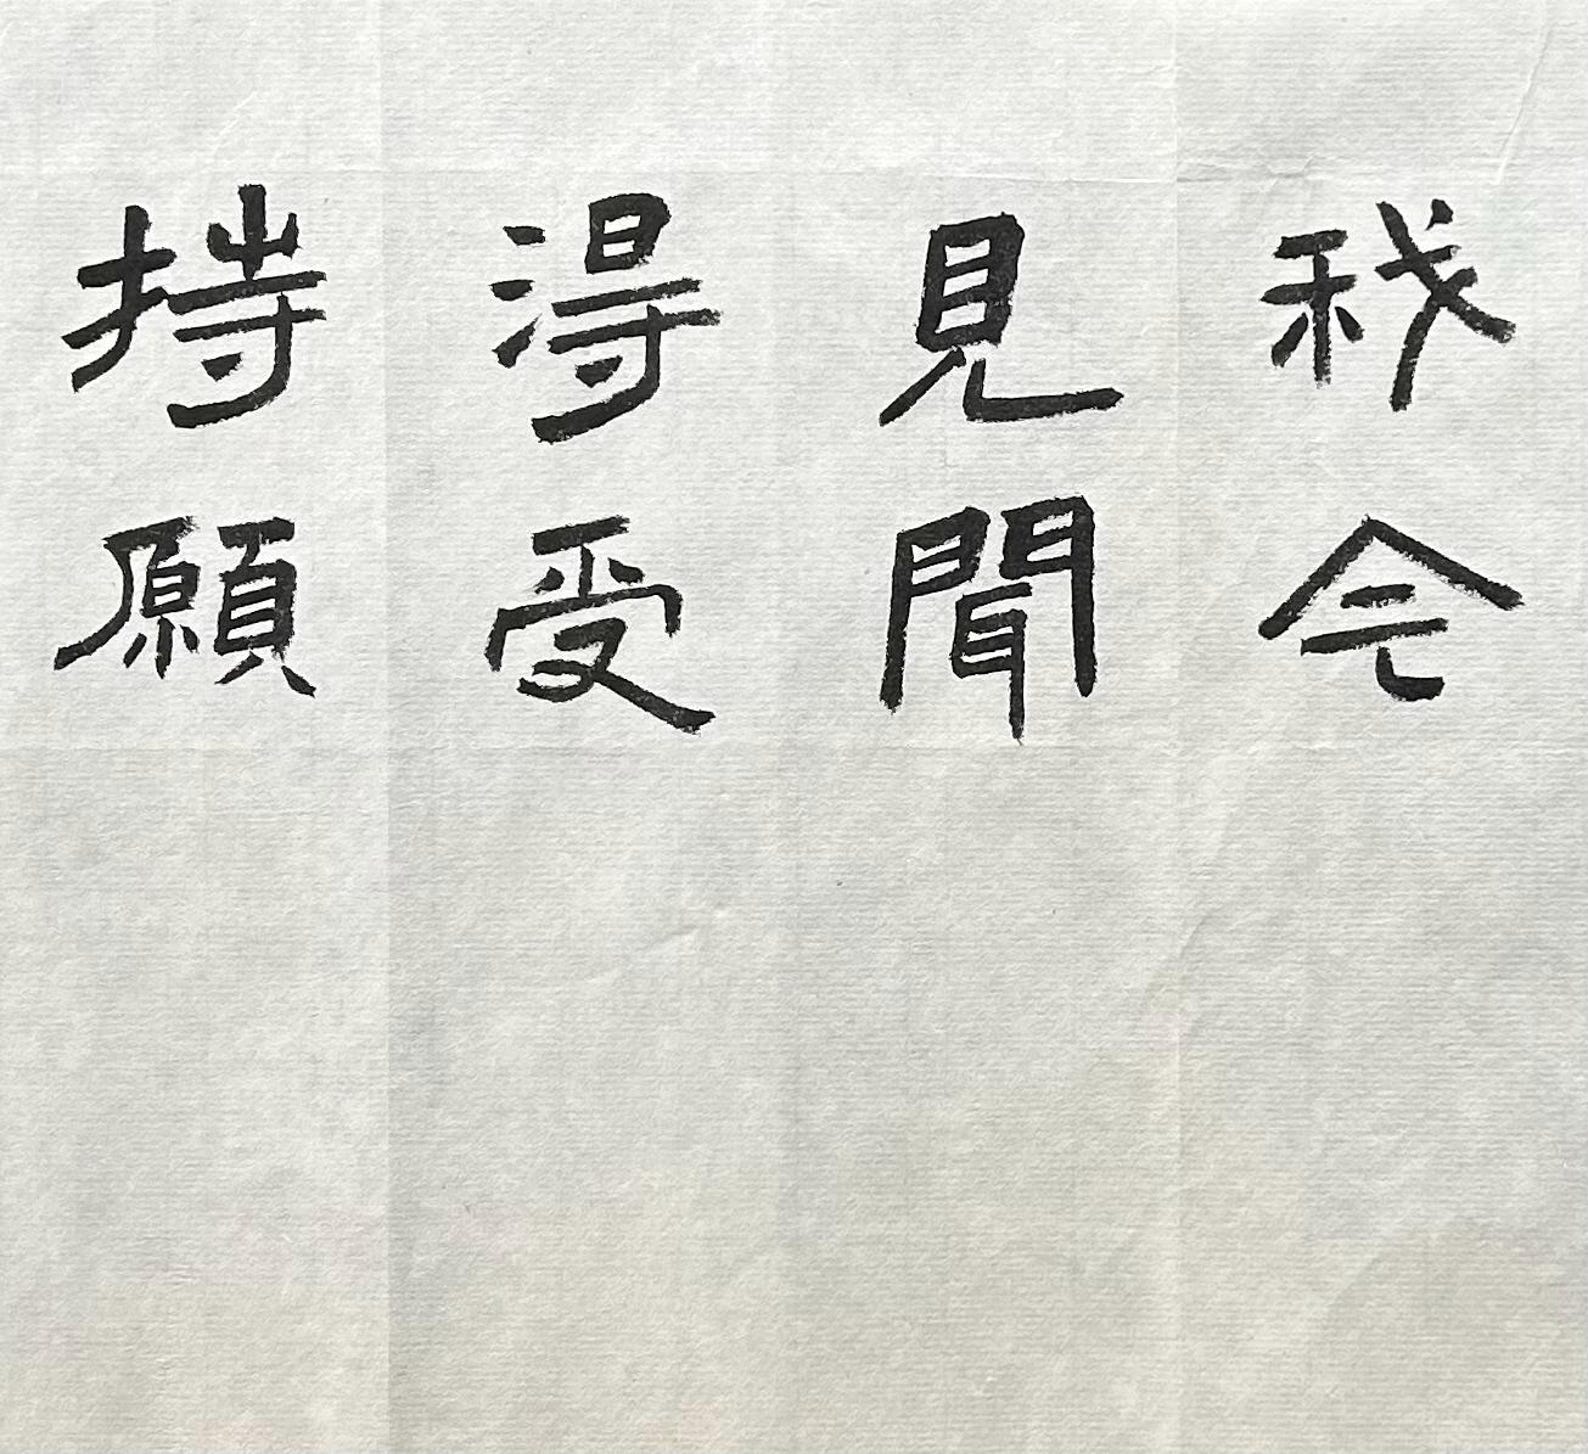 我今
見聞
得受
持願